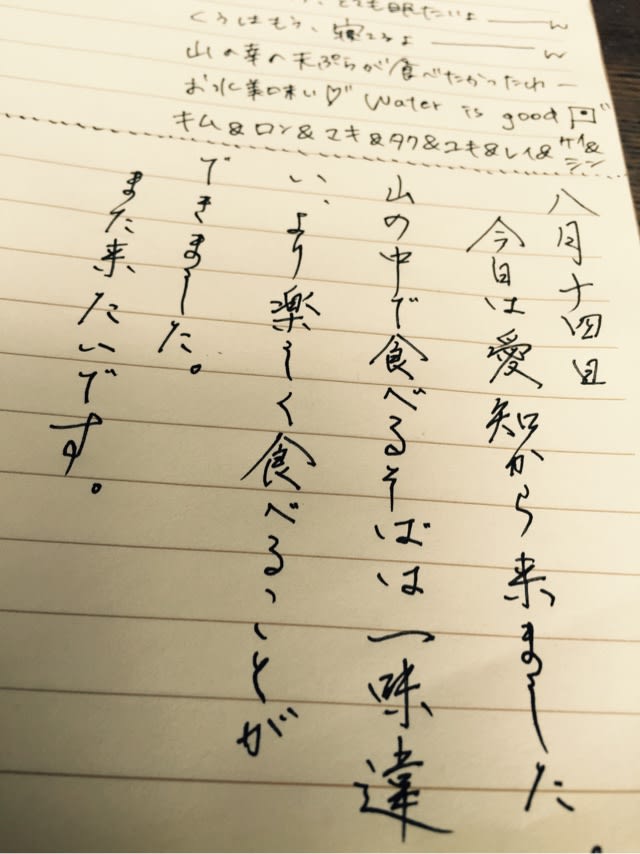 とても眠たいよ
くうはもう、寝てるよ
山の幸の天ぷらが食べたかったわー
お水美味い♡ Water is good
キム&ロン&マキ&タク&ユキ&レイ&ケイ&シン
八月十四日
今日は愛知から来ました。
山の中で食べるそばは一味違
い、より楽しく食べることが
できました。
また来たいです。